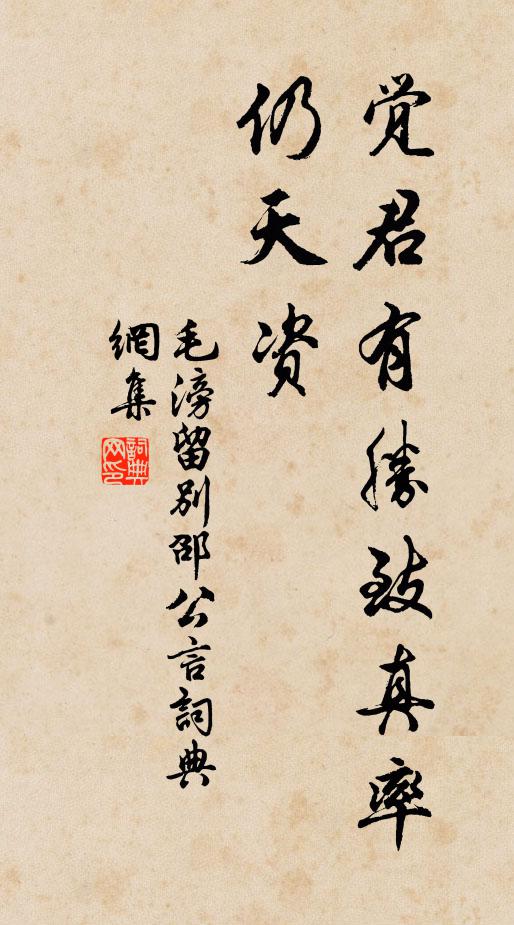 觉君有勝致真率
仍天资
毛滂留别邵公言詞典
網集
詞典网印